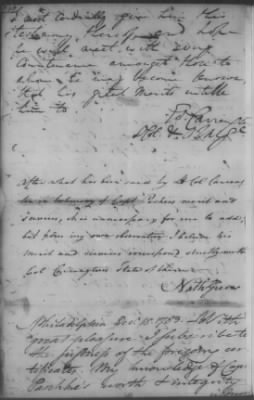 I most cordially give him this
testimony, thereof and hope
he will meet with every
Countenance amongst those to
whom he may become known
that his great Merits entitle
him to
Ed. Carrington
After what has been said by Lt Col Carring
ton in testimony of Capt merit and
Services, it is unnecessary for me to add;
but from my own observation I believe his
merit and services correspond strictly with
Col Carringtons State of them
Nath Greene
Philadelphia Dec. 15 1783 With
great pleasure I subscribe to
the justness of the foregoing cer
tificates. My knowledge of Capt
worth & integrity